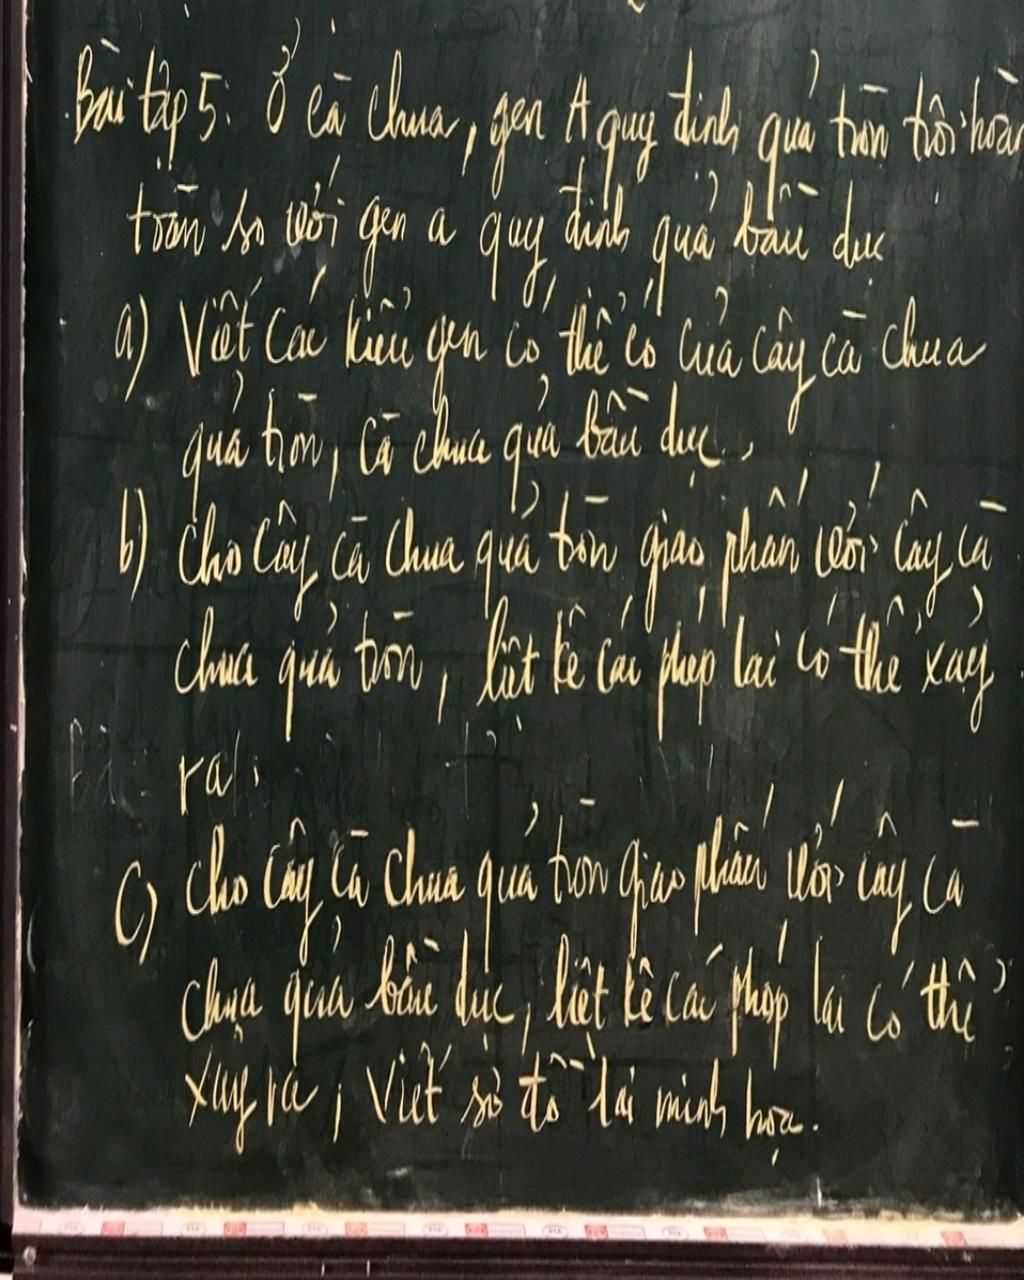 Bài tập 5: Ở cà chua, gen A quy định quả tròn trội hoàn
toàn so với gen a quy định quả bầu dục
a) Viết các kiểu gen có thể có của cây cà chua
quả tròn, cà chua quả bầu dục.
b) Cho cây cà chua quả tròn giao phấn với cây cà
chua quả tròn, liệt kê các phép lai có thể xảy
ra.
c) Cho cây cà chua quả tròn giao phấn với cây cà
chua quả bầu dục, liệt kê các phép lai có thể
xảy ra, viết sơ đồ lai minh họa.